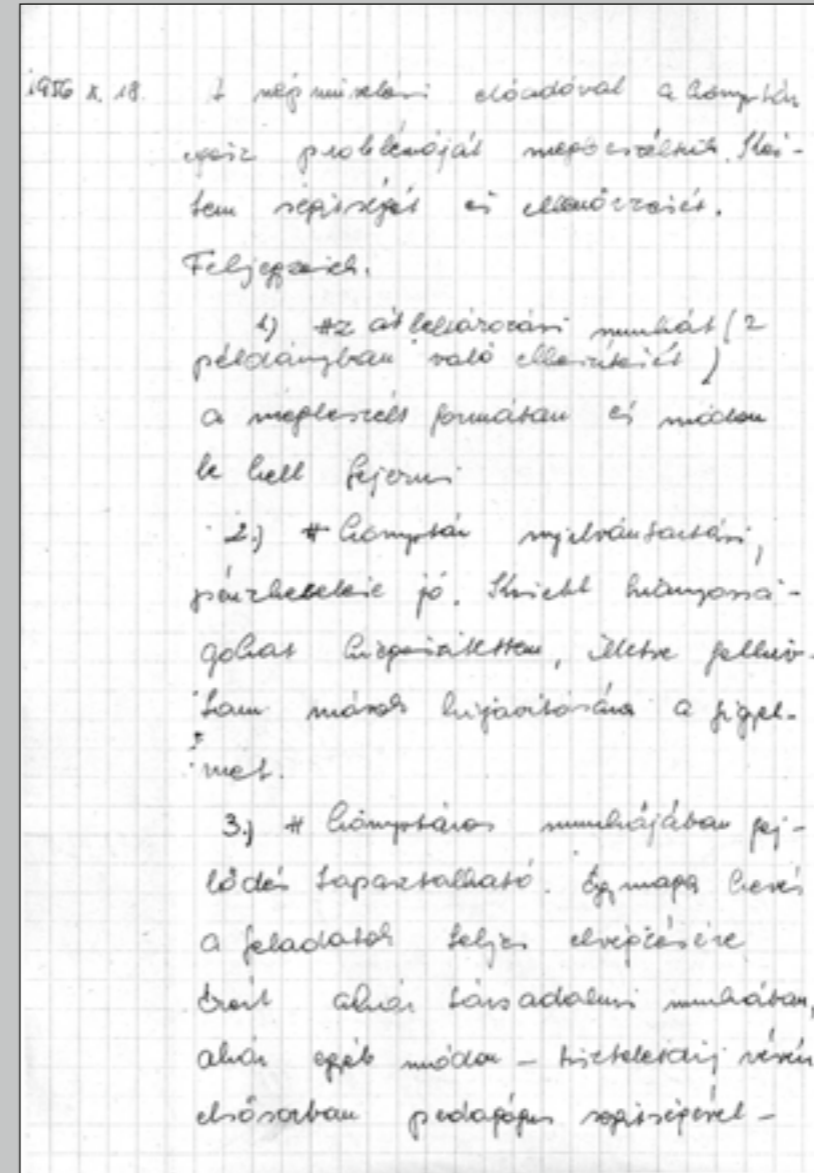 1956 X. 18. A népművelési előadóval a könyvtár
egész problémáját megbeszéltük. Kér-
tem segítségét és ellenőrzését.
Feljegyzések.
1) Az átleltározási munkát (2
példányban való elkészítését)
a megbeszélt formában és módon
be kell fejezni
2.) A könyvtár nyilvántartási,
pénzkezelése jó. Kisebb hiányossá-
gokat kiigazítottam, illetve felhív-
tam mások kijavítására a figyel-
met.
3.) A könyvtáros munkájában fej-
lődés tapasztalható. Egymaga kevés
a feladatok teljes elvégzésére
Ezért akár társadalmi munkában,
akár egyéb módon – tiszteletdíj révén
elsősorban pedagógus segítségével –